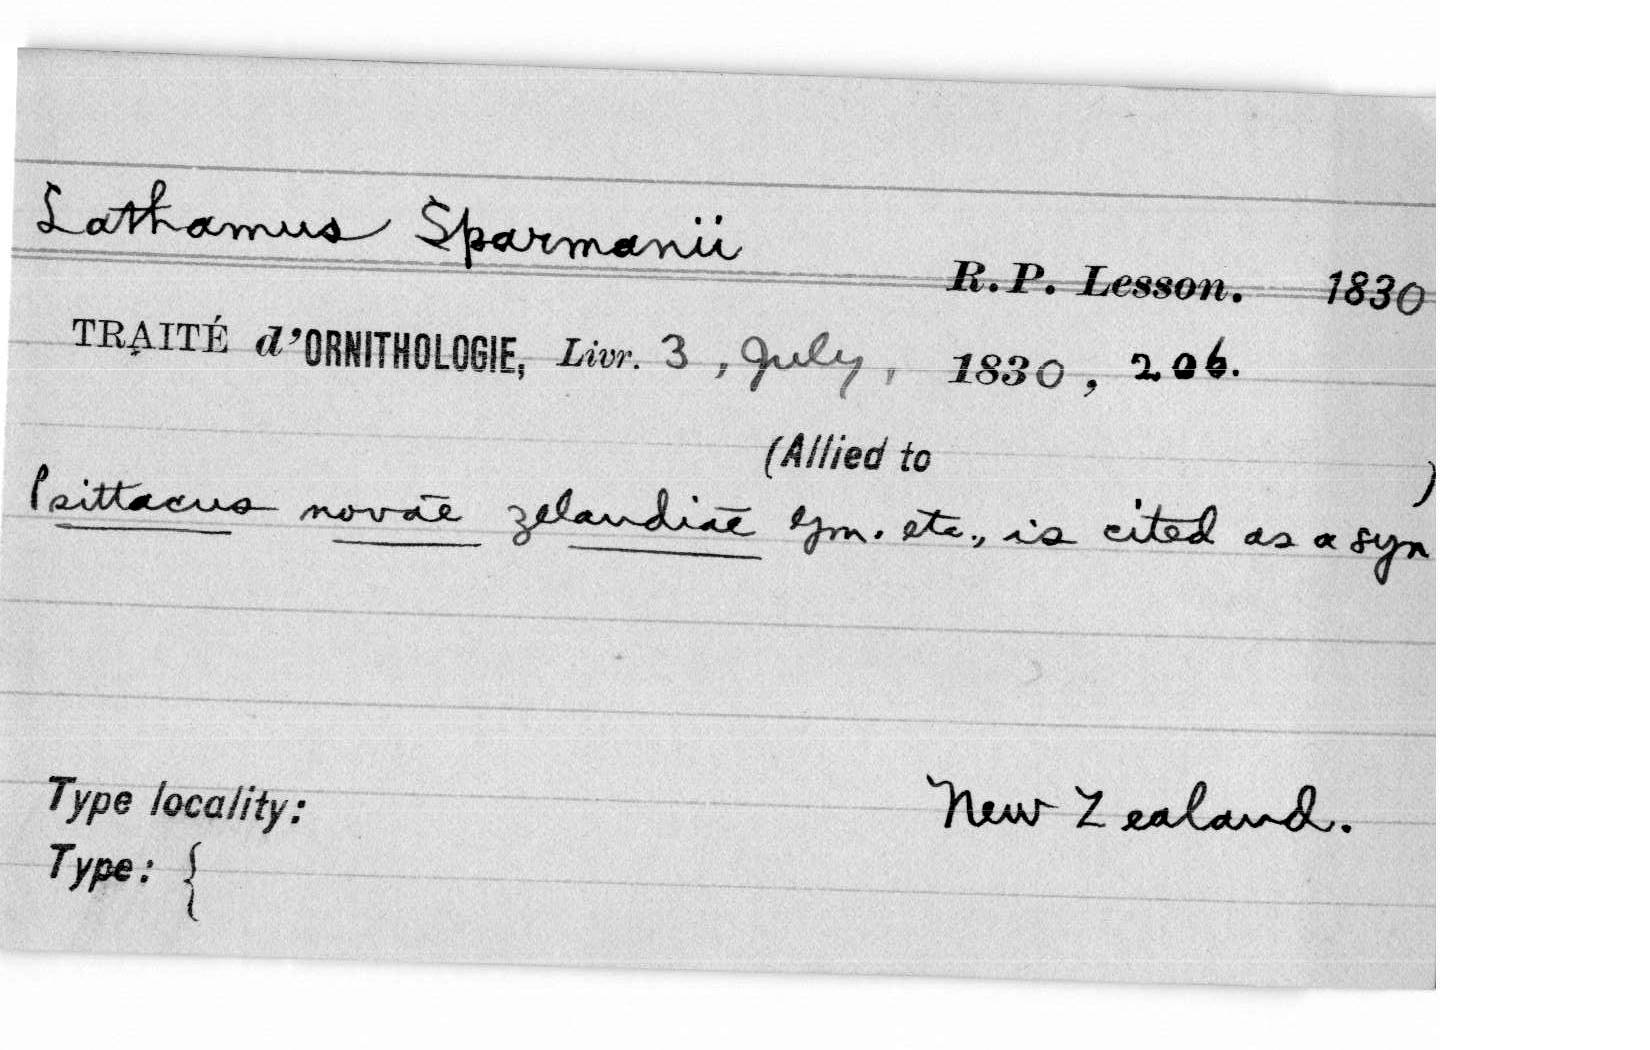 Lathamus Sparmanii
R.P. Lesson. 1830
TRAITÉ d'ORNITHOLOGIE, Livr. 3, July, 1830, 206.
(Allied to )
Psittacus novae zelandiae Gm. etc., is cited as a syn
Type locality: New Zealand.
Type: {